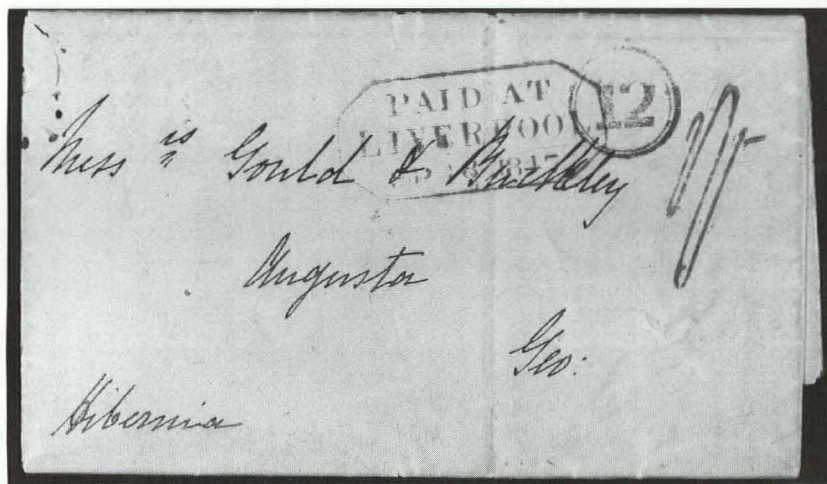 PAID AT
LIVERPOOL
1847
12
Mess rs Gould & Buckley
Augusta
Geo:
Hibernia